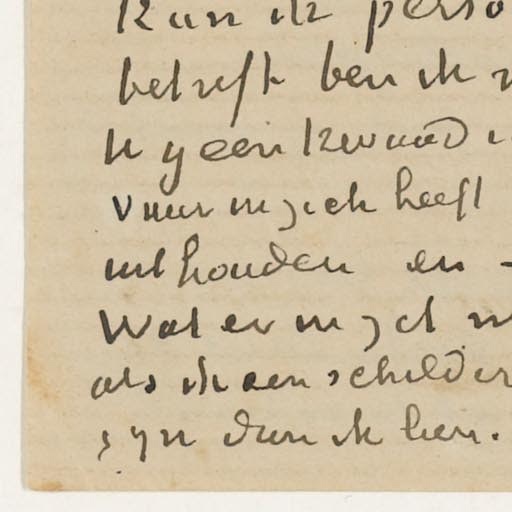 Kan ik perso
betreft ben ik
U geen kwaad
vuur in zich heeft
uithouden en -
Wat er in zit
als ik een schilder
zyn dan ik ben.